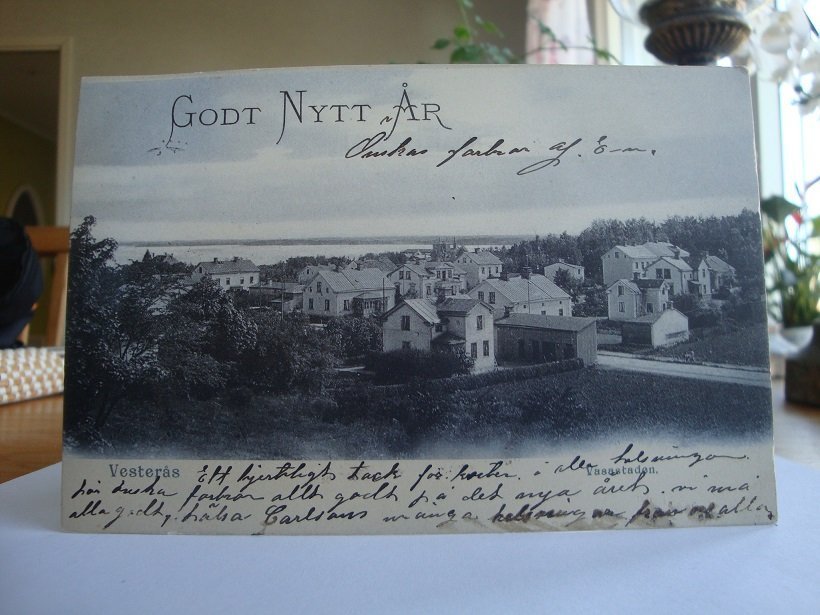 GODT NYTT ÅR
Önskas farbror af. E-n.
Vesterås
Vasastaden.
Ett hjertligt tack för kortet. å alla helsningar.
får önska farbror allt godt på det nya året. vi må
alla godt, hälsa Carlsons många helsningar från oss alla